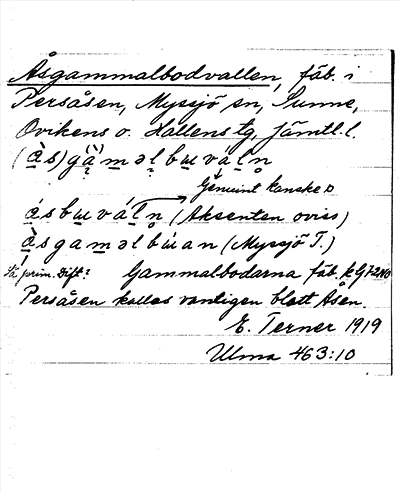 Åsgammalbodvallen, fäb. i
Persåsen, Myssjö sn, Sunne,
Ovikens o. Hallens tg, Jämtl. l.
(ɑ̀s)gɑ̀məḷbɯvɑḷn̥
Genuint kanske
ɑ́sbɯvɑ́ḷn̥ (Aksenten oviss)
ɑ̀sgaməlbɯ́an (Myssjö T.)
prim. Gammalbodarna fäb.
Persåsen kallas vanligen blott Åsen.
E. Terner 1919
Ulma 463:10